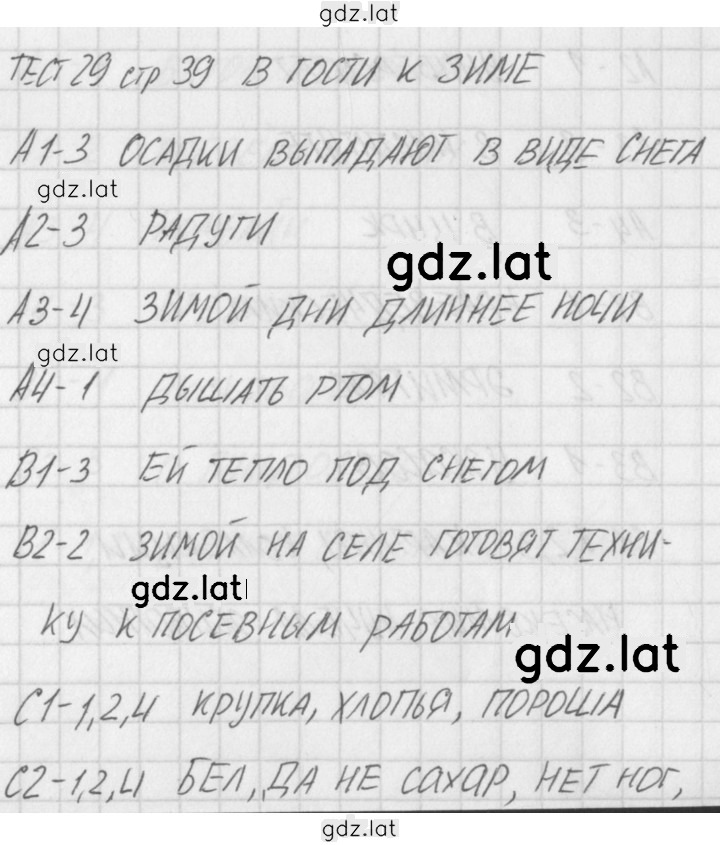 gdz.lat
ТЕСТ 29 стр 39 В ГОСТИ К ЗИМЕ
А1-3 ОСАДКИ ВЫПАДАЮТ В ВИДЕ СНЕГА
gdz.lat
А2-3 РАДУГИ
gdz.lat
А3-4 ЗИМОЙ ДНИ ДЛИННЕЕ НОЧИ
gdz.lat
А4-1 ДЫШАТЬ РТОМ
В1-3 ЕЙ ТЕПЛО ПОД СНЕГОМ
В2-2 ЗИМОЙ НА СЕЛЕ ГОТОВЯТ ТЕХНИ-
gdz.lat
КУ К ПОСЕВНЫМ РАБОТАМ
gdz.lat
С1-1,2,4 КРУПКА, ХЛОПЬЯ, ПОРОША
С2-1,2,4 БЕЛ, ДА НЕ САХАР, НЕТ НОГ,
gdz.lat